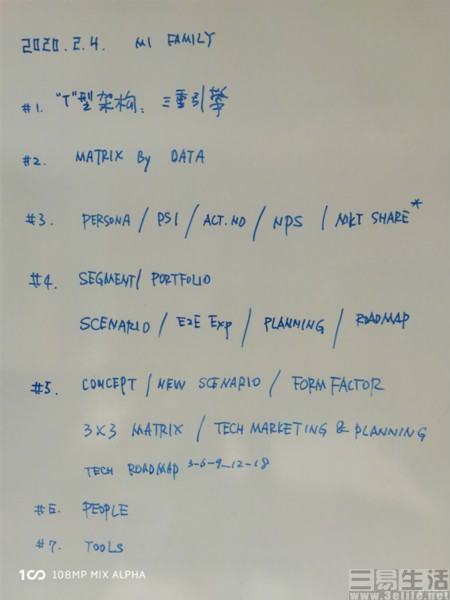 2020.2.4. MI FAMILY
#1. "T"型架构: 三重引擎
#2. MATRIX By DATA
#3. PERSONA / PSI / ACT.NO / NPS / MKT SHARE*
#4. SEGMENT/ PORTFOLIO
SCENARIO / E2E Exp / PLANNING / ROADMAP
#5. CONCEPT / NEW SCENARIO / FORM FACTOR
3X3 MATRIX / TECH MARKETING & PLANNING
TECH ROADMAP 3-6-9-12-18
#6. PEOPLE
#7. TOOLS
108MP MIX ALPHA
三易生活
www.3elife.net